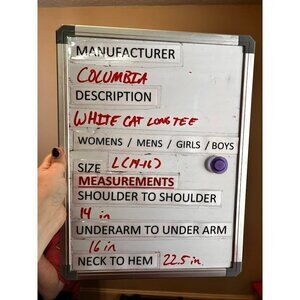 MANUFACTURER
COLUMBIA
DESCRIPTION
WHITE CAT LONG TEE
WOMENS / MENS / GIRLS / BOYS
SIZE L(14-16)
MEASUREMENTS
SHOULDER TO SHOULDER
14 in
UNDERARM TO UNDER ARM
16 in
NECK TO HEM 22.5 in